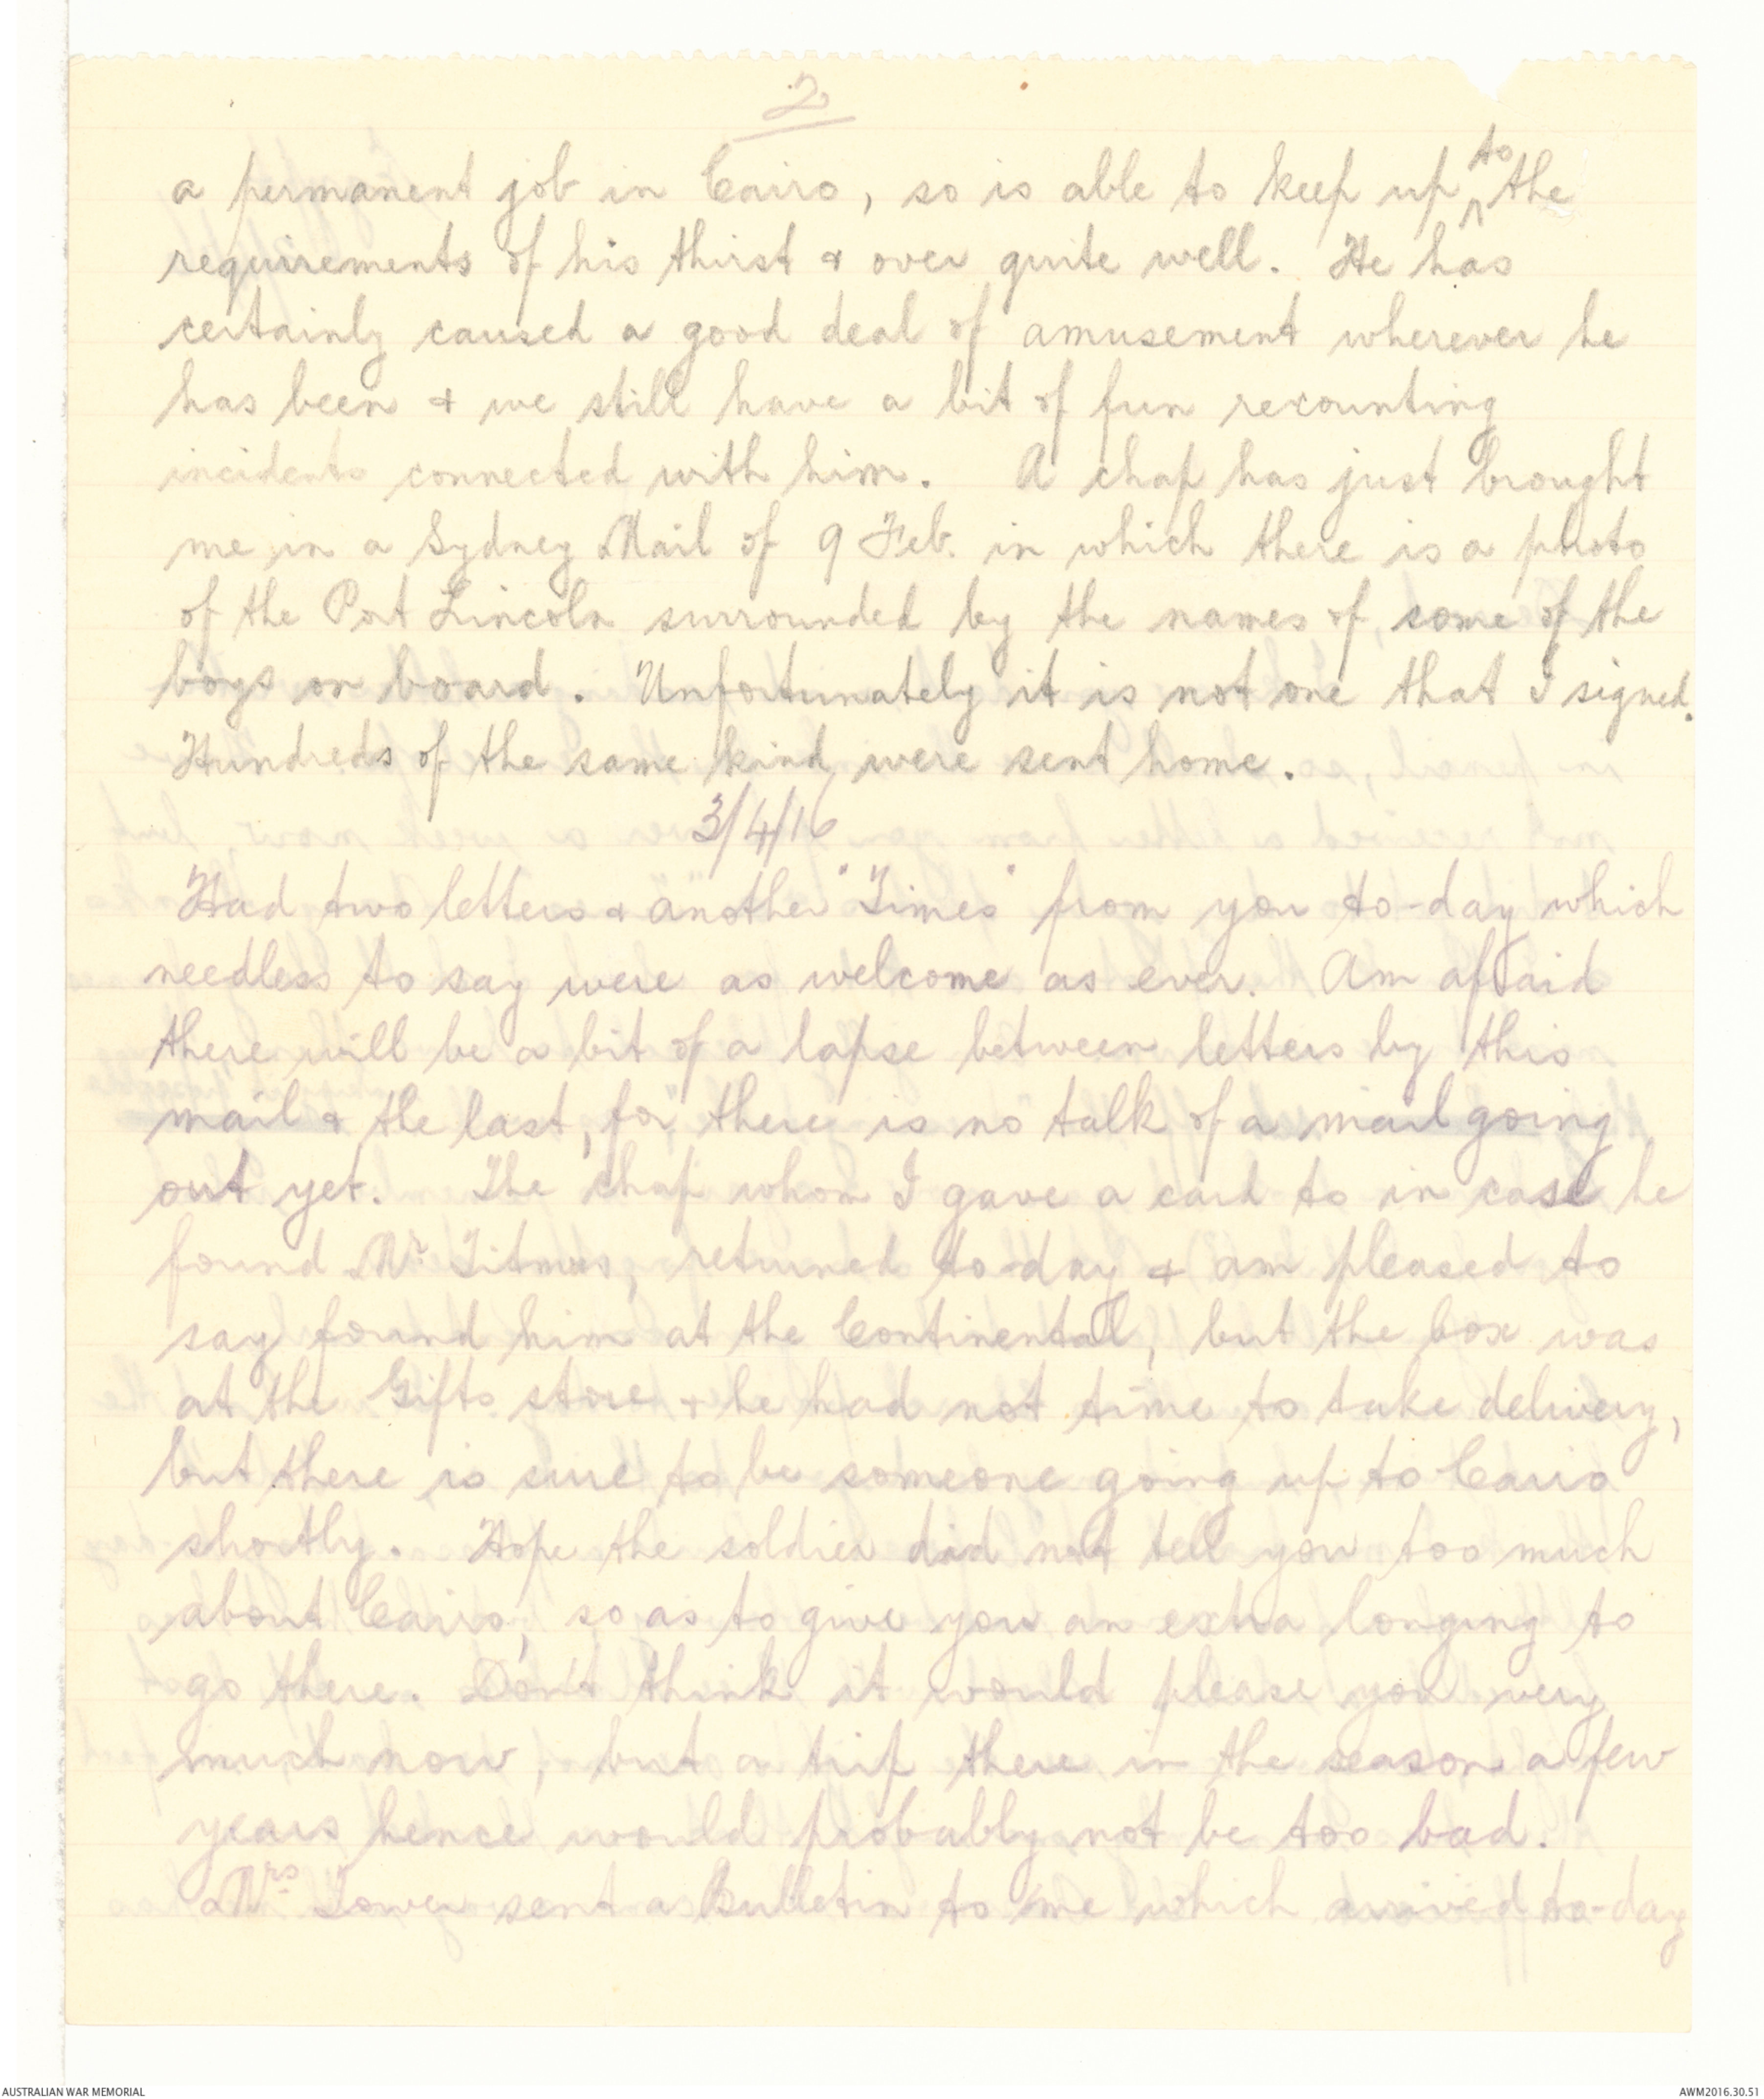 2
a permanent job in Cairo, so is able to keep up to the
requirements of his thirst & over quite well. He has
certainly caused a good deal of amusement wherever he
has been & we still have a bit of fun recounting
incidents connected with him. A chap has just brought
me in a Sydney Mail of 9 Feb. in which there is a photo
of the Port Lincoln surrounded by the names of some of the
boys on board. Unfortunately it is not one that I signed.
Hundreds of the same kind were sent home.
3/4/16
Had two letters & another "Times" from you to-day which
needless to say were as welcome as ever. Am afraid
there will be a bit of a lapse between letters by this
mail & the last, for there is no talk of a mail going
out yet. The chap whom I gave a card to in case he
found Mr Titmus, returned to-day & am pleased to
say found him at the Continental, but the box was
at the Gifts store & he had not time to take delivery,
but there is sure to be someone going up to Cairo
shortly. Hope the soldier did not tell you too much
about Cairo, so as to give you an extra longing to
go there. Don't think it would please you very
much now, but a trip there in the season a few
years hence would probably not be too bad.
Mrs Lower sent a Bulletin to me which arrived to-day
AUSTRALIAN WAR MEMORIAL
AWM2016.30.51